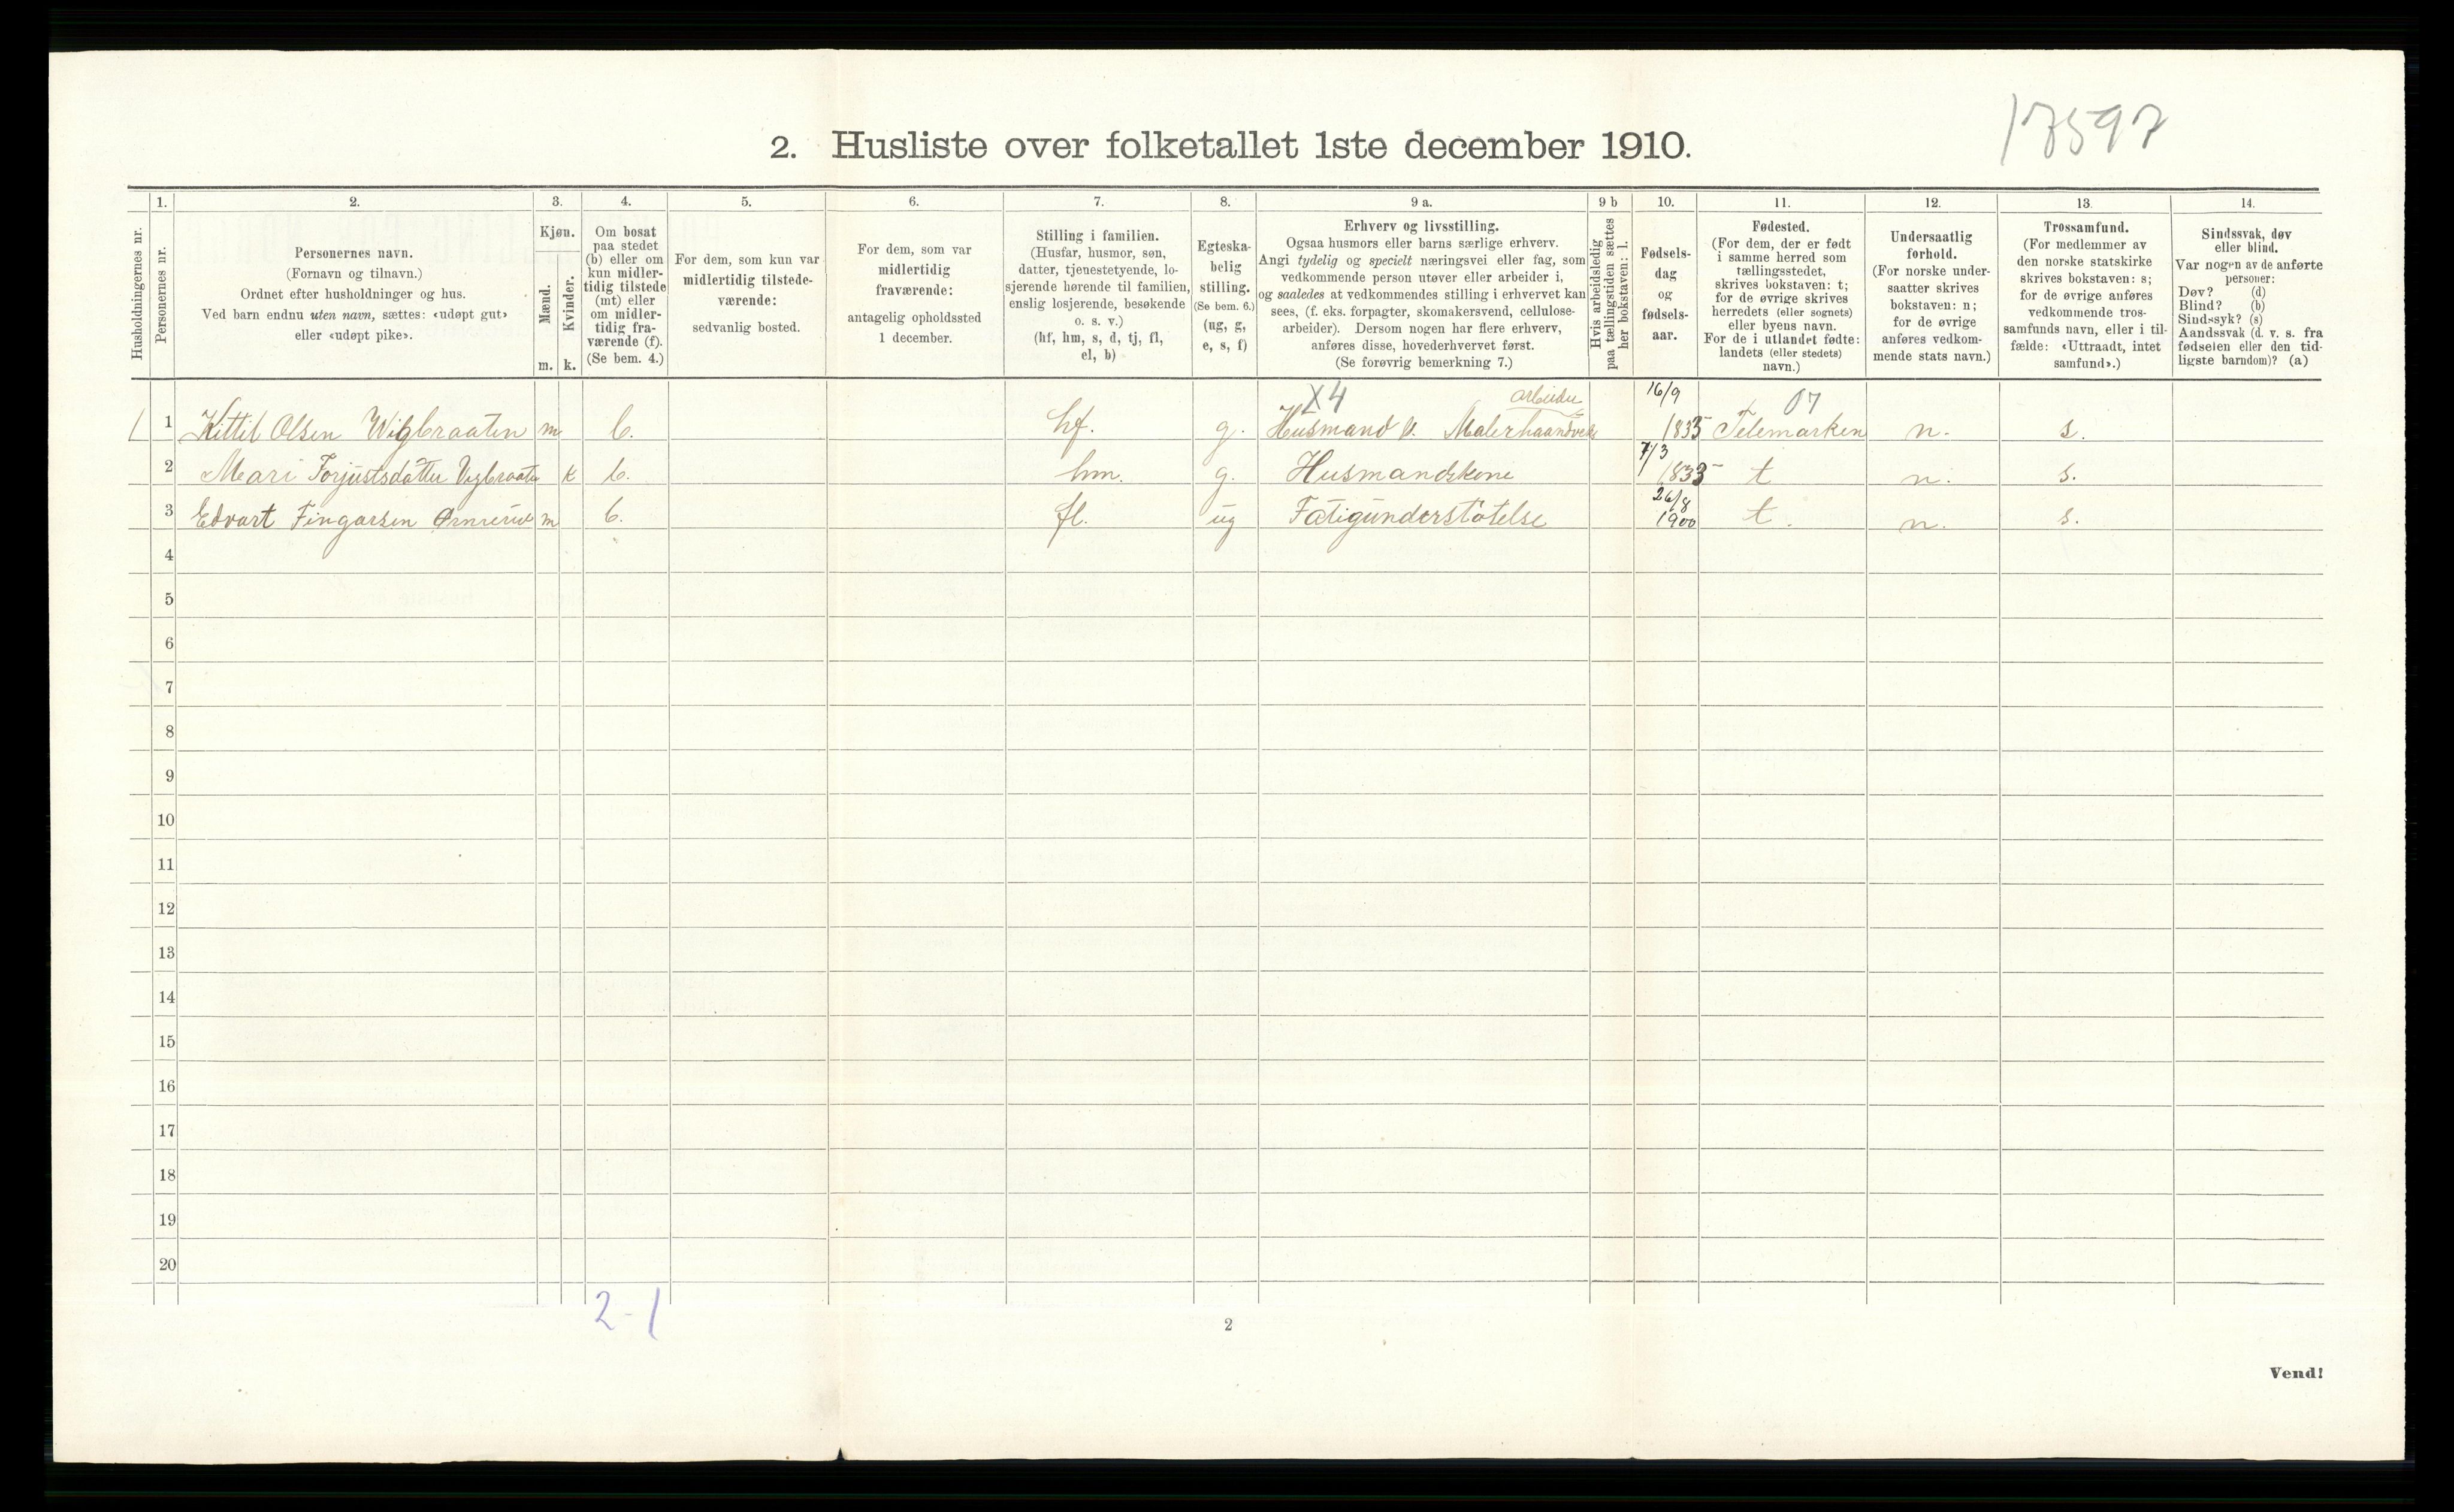 17597
2. Husliste over folketallet 1ste december 1910.
Husholdningernes nr.
1.
Personernes nr.
2.
Personernes navn.
(Fornavn og tilnavn.)
Ordnet efter husholdninger og hus.
Ved barn endnu uten navn, sættes: «udøpt gut»
eller «udøpt pike».
3.
Kjøn.
Mænd.
Kvinder.
m. k.
4.
Om bosat
paa stedet
(b) eller om
kun midler-
tidig tilstede
(mt) eller
om midler-
tidig fra-
værende (f).
(Se bem. 4.)
5.
For dem, som kun var
midlertidig tilstede-
værende:
sedvanlig bosted.
6.
For dem, som var
midlertidig
fraværende:
antagelig opholdssted
1 december.
7.
Stilling i familien.
(Husfar, husmor, søn,
datter, tjenestetyende, lo-
sjerende hørende til familien,
enslig losjerende, besøkende
o. s. v.)
(hf, hm, s, d, tj, fl,
el, b)
8.
Egteska-
belig
stilling.
(Se bem. 6.)
(ug, g,
e, s, f)
9 a.
Erhverv og livsstilling.
Ogsaa husmors eller barns særlige erhverv.
Angi tydelig og specielt næringsvei eller fag, som
vedkommende person utøver eller arbeider i,
og saaledes at vedkommendes stilling i erhvervet kan
sees, (f. eks. forpagter, skomakersvend, cellulose-
arbeider). Dersom nogen har flere erhverv,
anføres disse, hovederhvervet først.
(Se forøvrig bemerkning 7.)
9 b
Hvis arbeidsledig
paa tællingstiden sættes
her bokstaven: l.
10.
Fødsels-
dag
og
fødsels-
aar.
11.
Fødested.
(For dem, der er født
i samme herred som
tællingsstedet,
skrives bokstaven: t;
for de øvrige skrives
herredets (eller sognets)
eller byens navn.
For de i utlandet fødte:
landets (eller stedets)
navn.)
12.
Undersaatlig
forhold.
(For norske under-
saatter skrives
bokstaven: n;
for de øvrige
anføres vedkom-
mende stats navn.)
13.
Trossamfund.
(For medlemmer av
den norske statskirke
skrives bokstaven: s;
for de øvrige anføres
vedkommende tros-
samfunds navn, eller i til-
fælde: «Uttraadt, intet
samfund».)
14.
Sindssvak, døv
eller blind.
Var nogen av de anførte
personer:
Døv? (d)
Blind? (b)
Sindssyk? (s)
Aandssvak (d. v. s. fra
fødselen eller den tid-
ligste barndom)? (a)
X4 arbeider 16/9 07
1 1 Kittil Olsen Wigbraaten m b. hf. g. Husmand Malerhaandverk 1833 Telemarken n. s.
7/3
2 Mari Torjustsdatter Vigbraaten k b. hm. g. Husmandskone 1833 t n. s.
26/8
3 Edvart Fingarsen m b. fl. ug Fatigunderstøtelse 1900 t. n. s.
4
5
6
7
8
9
10
11
12
13
14
15
16
17
18
19
20
2-1
2
Vend!